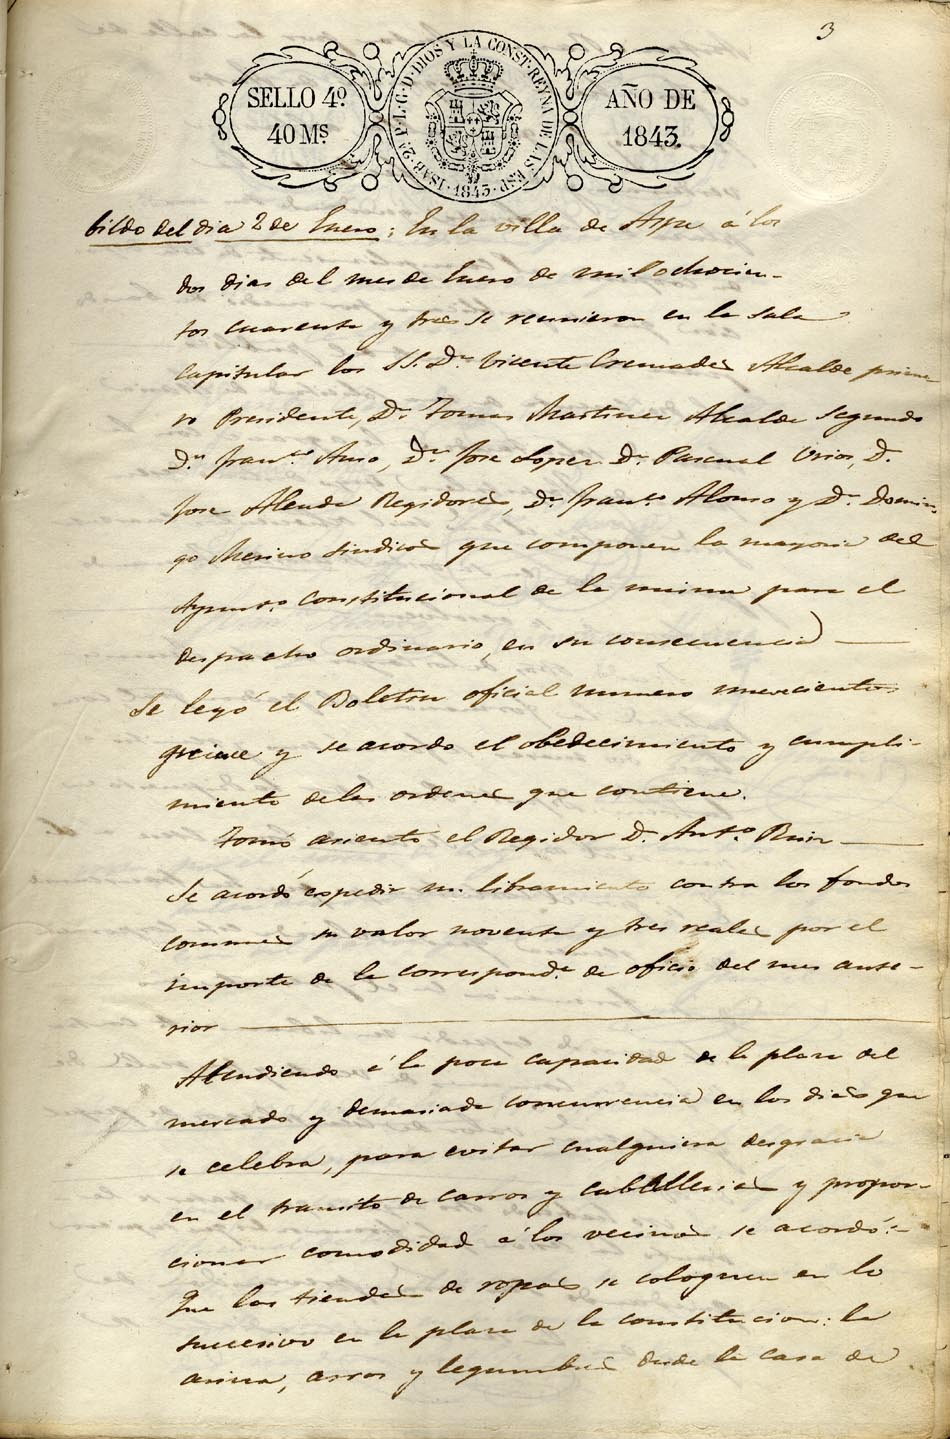 3
SELLO 4º
40 Mˢ.
ISAB. 2ª P. L. G. D. DIOS Y LA CONST. REYNA DE LAS ESP. 1843.
AÑO DE
1843.
bildo del dia 2 de Enero: En la villa de Aspe á los
dos dias del mes de Enero de mil ochocien-
tos cuarenta y tres se reunieron en la sala
capitular los SS. Dn. Vicente Cremades Alcalde prime
ro Presidente, Dn. Tomas Martinez Alcalde segundo
Dn. Franco. Dn. Jose Lopez Dn. Pascual D.
Jose Regidores, Dn. Franco. Alonso y Dn. Domin
go Merino Sindicos que componen la mayoria del
Ayunto. Constitucional de la misma para el
despacho ordinario, en su consecuencia
Se leyó el Boletin oficial numero nuevecientos
y se acordo el obedecimiento y cumpli-
miento de las ordenes que contiene.
Tomó asiento el Regidor Dn. Anto. Ruiz
Se acordó espedir un libramiento contra los fondos
comunes su valor noventa y tres reales por el
importe de la correspondª. de oficio del mes ante-
rior
Atendiendo á la poca capacidad de la plaza del
mercado y demasiada concurrencia en los dias que
se celebra, para evitar cualquiera desgracia
en el transito de carros y caballerias y propor-
cionar comodidad á los vecinos se acordó:-
Que las tiendas de ropas se coloquen en lo
sucesivo en la plaza de la constitucion: la
arina, arros y legumbres desde la casa de